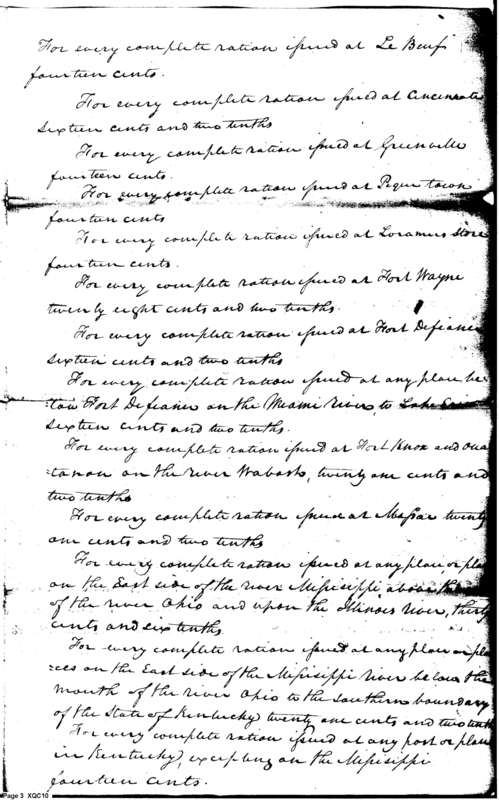 For every complete ration issued at Le Beuf
fourteen cents.
For every complete ration issued at Cincinnati
sixteen cents and two tenths
For every complete ration issued at Greenville
fourteen cents.
For every complete ration issued at Pique town
fourteen cents
For every complete ration issued at Loramus store
fourteen cents.
For every complete ration issued at Fort Wayne
twenty eight cents and two tenths.
For every complete ration issued at Fort Defiance
sixteen cents and two tenths
For every complete ration issued at any place be
low Fort Defiance on the Meami river, to Lake Erie
sixteen cents and two tenths.
For every complete ration issued at Fort Knox and oua
=tanon on the river Wabash, twenty one cents and
two tenths
For every complete ration issued at Massac twenty
one cents and two tenths
For every complete ration issued at any place, or pla
on the East side of the river Missisippi above the
of the river Ohio and upon the Illinois river, thirty
cents and six tenths
For every complete ration issued at any place or pla
=ces on the East side of the Missisippi river below the
mouth of the river Ohio to the southern boundary
of the State of Kentucky twenty one cents and two tenths
For every complete ration issued at any post or place
in Kentucky, excepting on the Missisippi
fourteen cents.
Page 3 XQC10